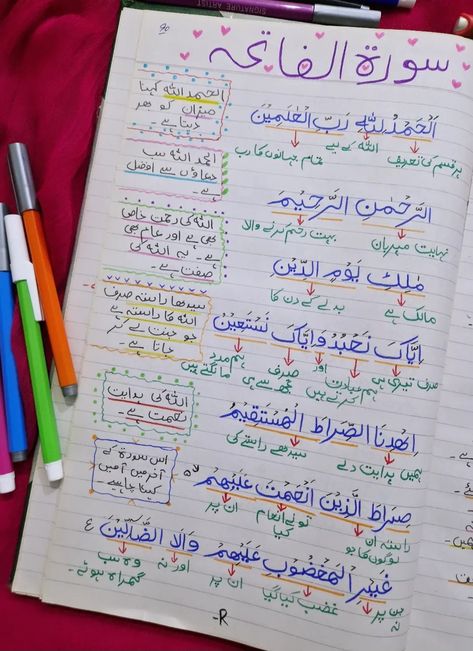 SIGNATURE ARTIST
سورة الفاتحہ
اَلْحَمْدُ لِلّٰهِ رَبِّ الْعٰلَمِیْنَ
ہر قسم کی تعریف اللہ کے لیے تمام جہانوں کا رب
الرَّحْمٰنِ الرَّحِیْمِ
نہایت مہربان بہت رحم کرنے والا
مٰلِكِ یَوْمِ الدِّیْنِ
مالک ہے بدلے کے دن کا
اِیَّاكَ نَعْبُدُ وَ اِیَّاكَ نَسْتَعِیْنُ
صرف تیری ہی ہم عبادت اور صرف ہم مدد
کرتے ہیں تجھ سے ہی مانگتے ہیں
اِهْدِنَا الصِّرَاطَ الْمُسْتَقِیْمَ
ہمیں ہدایت دے سیدھے راستے کی
صِرَاطَ الَّذِیْنَ اَنْعَمْتَ عَلَیْهِمْ
راستہ ان تو نے انعام ان پر
لوگوں کا جو کیا
غَیْرِ الْمَغْضُوْبِ عَلَیْهِمْ وَلَا الضَّآلِّیْنَ
جن پر غضب کیا گیا ان پر اور نہ وہ سب
نہ گمراہ ہوئے۔
الحمد اللہ کہنا
میزان کو بھر
دیتا ہے۔
الحمد اللہ سب
دعاؤں سے افضل
ہے۔
اللہ کی رحمٰن خاص
بھی ہے اور عام بھی
ہے۔ یہ اللہ کی
صفت ہے۔
سیدھا راستہ صرف
اللہ کا راستہ ہے
جو جنت لے کر
جاتا ہے۔
اللہ کی ہدایت
نعمت ہے۔
اس سورۃ کے
آخر میں آمین
کہنا چاہیے۔
-R